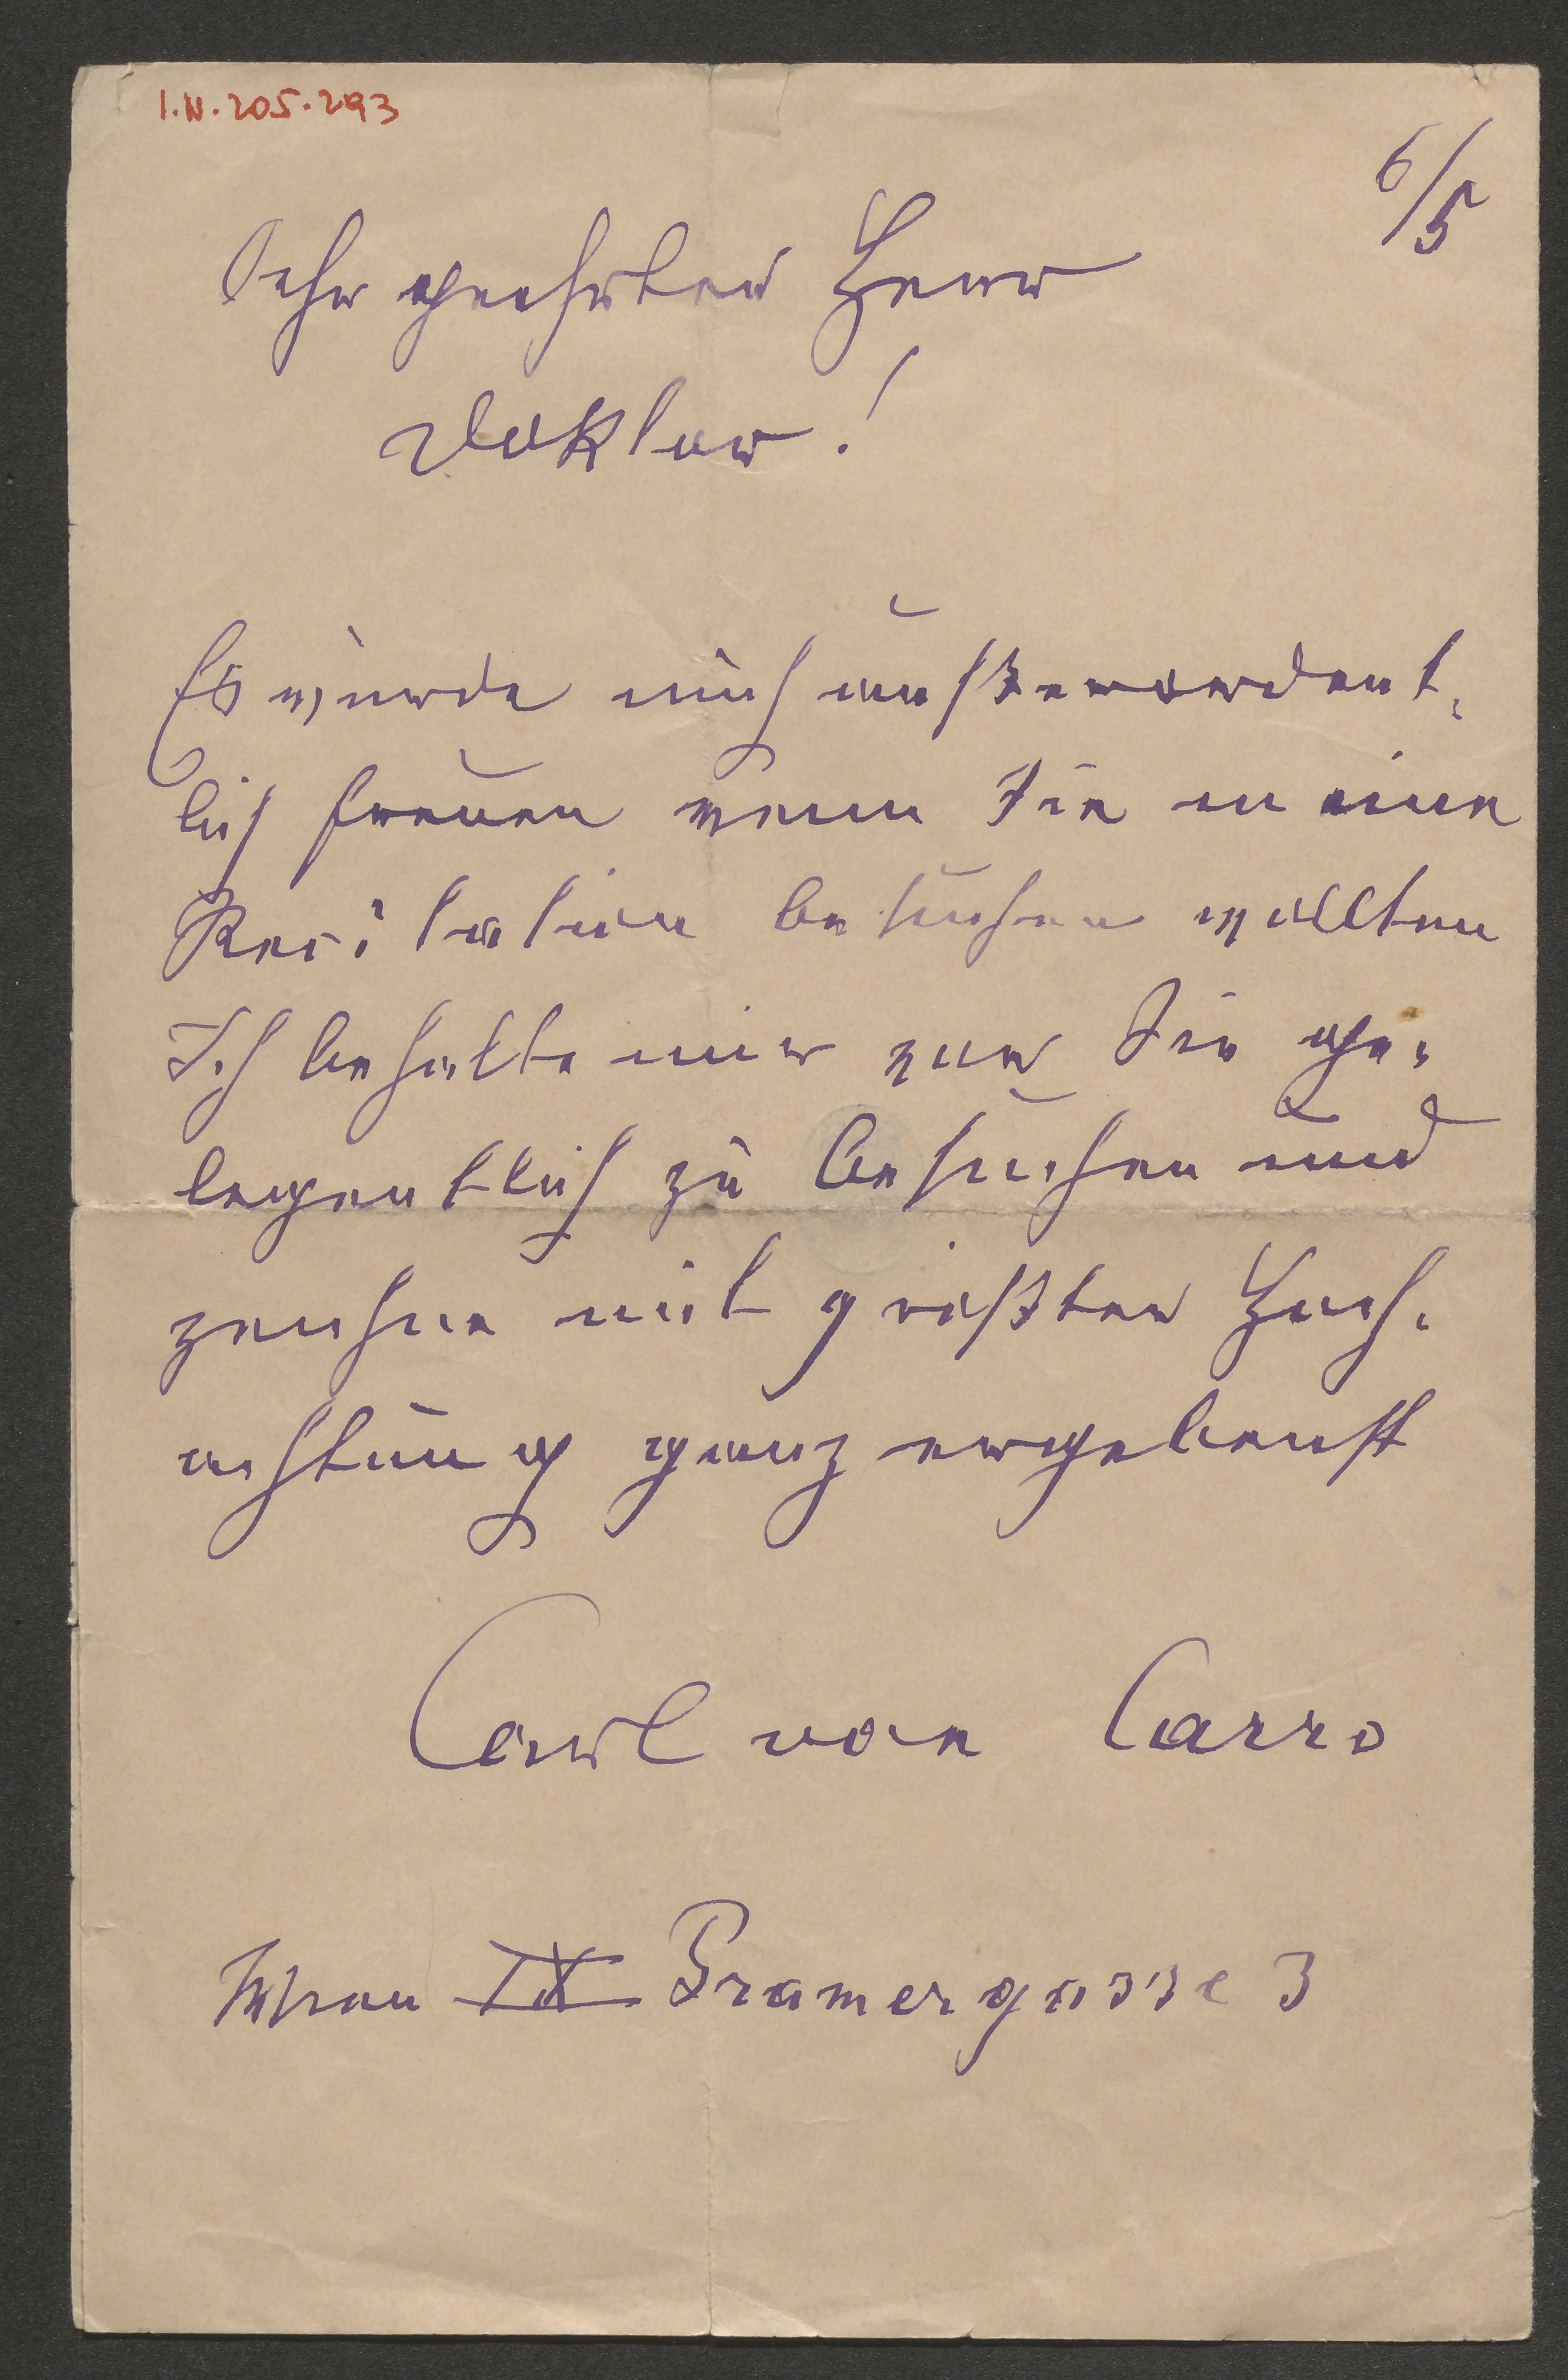 I.N. 205.293
6/5
Sehr geehrter Herr
Doktor!
Es würde mich außerordent-
lich freuen wenn Sie meine
Recitation besuchen wollten
Ich behalte mir vor Sie ge-
legentlich zu besuchen und
zeichne mit größter Hoch-
achtung ganz ergebenst
Carl von Carro
Wien IX Pramergasse 3